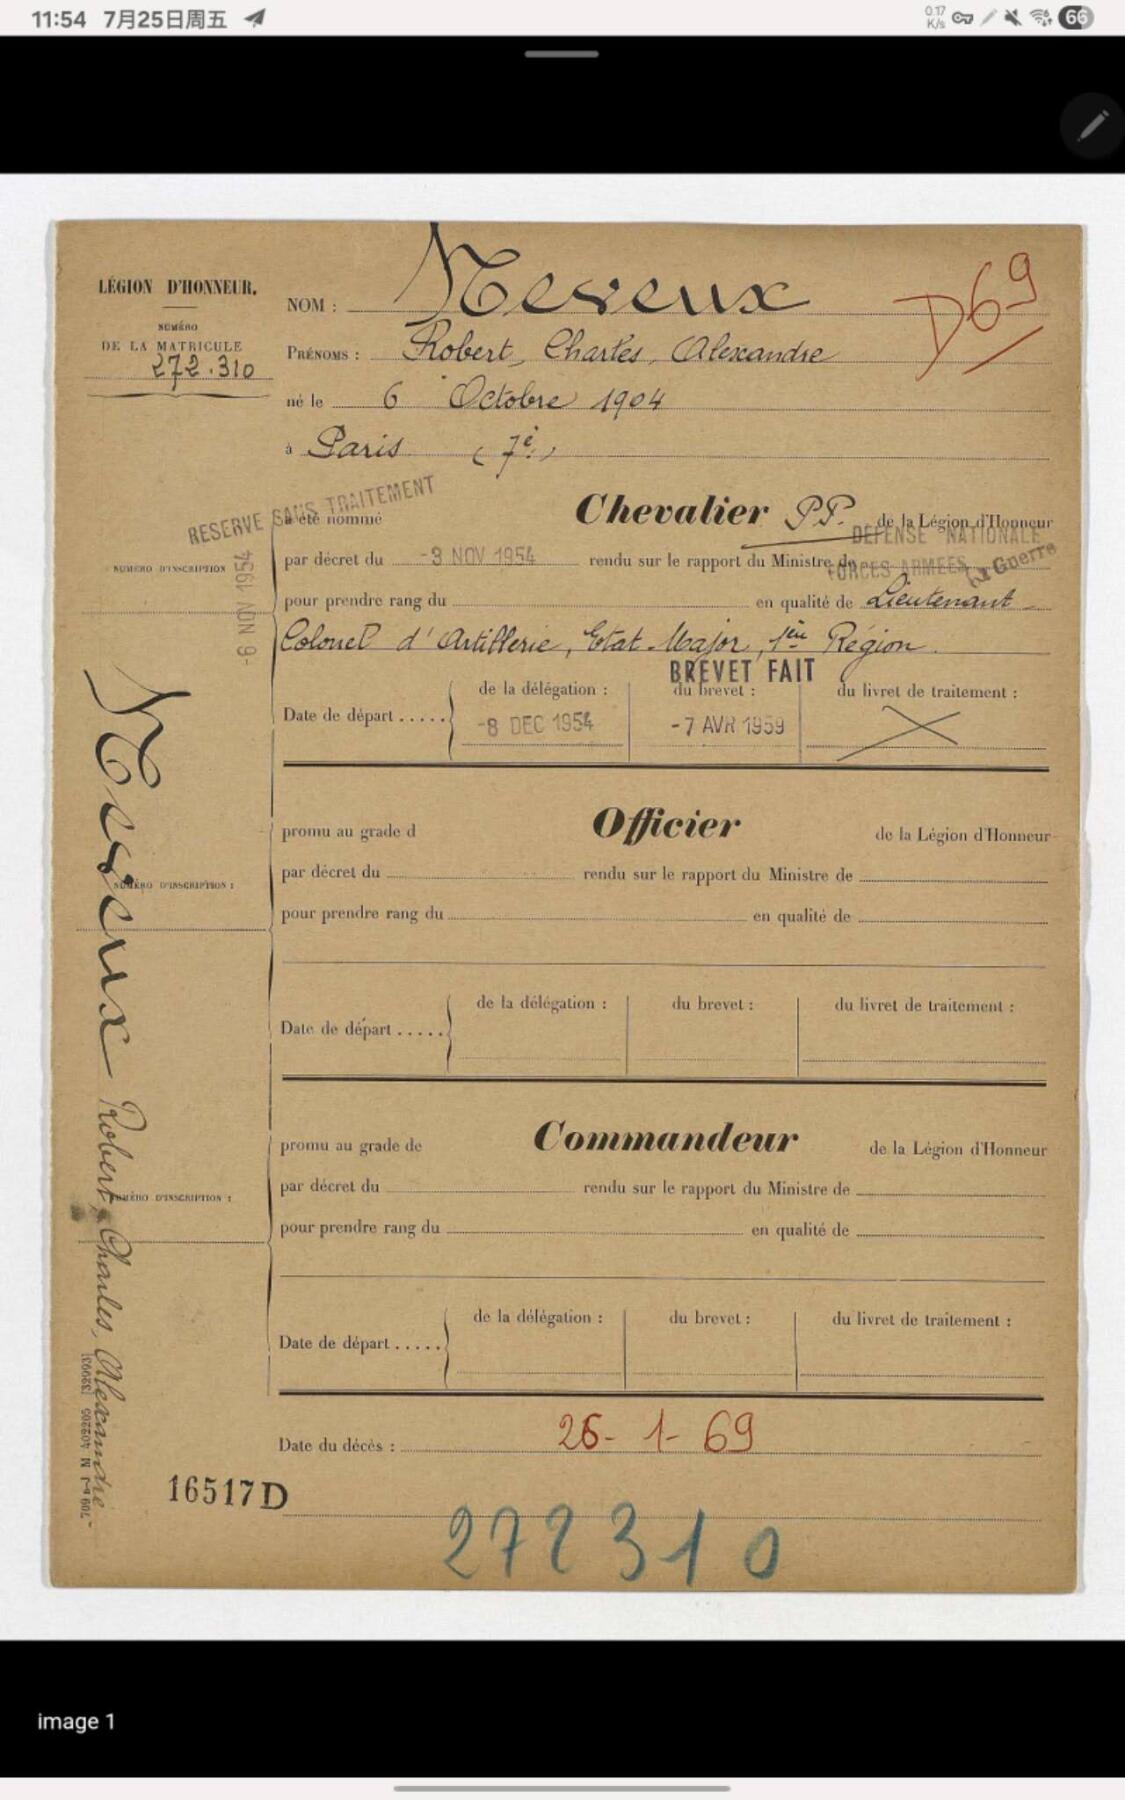 11:54 7月25日周五
0.17 K/s
66
LÉGION D'HONNEUR.
NUMÉRO
DE LA MATRICULE
272.310
NOM :
PRÉNOMS : Robert, Charles, Alexandre
né le 6 Octobre 1904
à Paris (7e.)
D69
RESERVE SANS TRAITEMENT
a été nommé Chevalier P.P. de la Légion d'Honneur
DÉFENSE NATIONALE
FORCES ARMÉES La Guerre
NUMÉRO D'INSCRIPTION
-9 NOV 1954
par décret du -3 NOV 1954 rendu sur le rapport du Ministre de
pour prendre rang du en qualité de Lieutenant
Colonel d'Artillerie, Etat-Major, 1ère Région.
BREVET FAIT
de la délégation : du brevet : du livret de traitement :
Date de départ ..... -8 DEC 1954 -7 AVR 1959
promu au grade d Officier de la Légion d'Honneur
NUMÉRO D'INSCRIPTION :
par décret du rendu sur le rapport du Ministre de
pour prendre rang du en qualité de
de la délégation : du brevet : du livret de traitement :
Date de départ .....
promu au grade de Commandeur de la Légion d'Honneur
NUMÉRO D'INSCRIPTION :
par décret du rendu sur le rapport du Ministre de
pour prendre rang du en qualité de
de la délégation : du brevet : du livret de traitement :
Date de départ .....
Robert, Charles, Alexandre
Date du décès : 26-1-69
16517D
272310
image 1